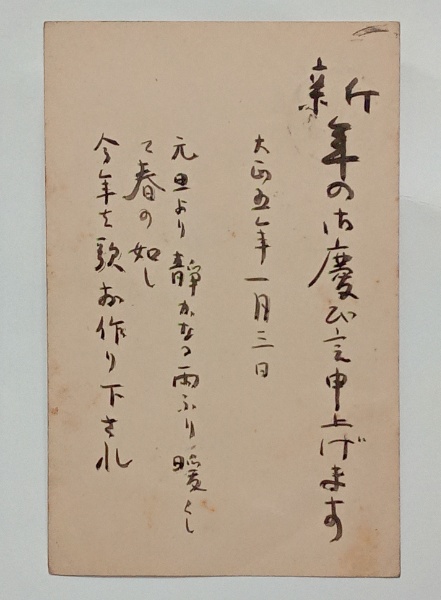 新年の御慶び言申上げます
大正五年一月三日
元旦より静かなる雨ふり暖くし
て春の如し
今年も歌お作り下され